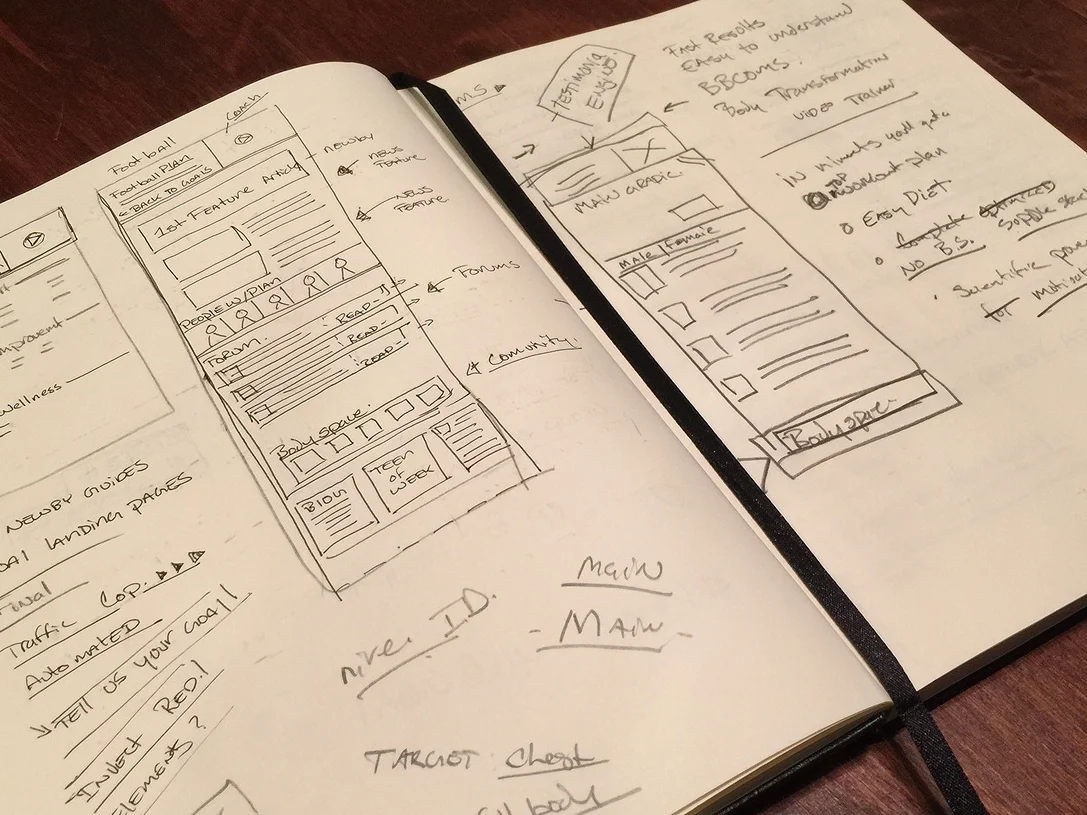 Football
COACH
Football PLAN
< BACK TO GOALS
1st Feature Article
newby
NEWS
FEATURE
NEWS
FEATURE
PEOPLE W/PLAN
FORUM.
READ
READ
READ
Forums
Comunity.
BodySpace.
TEEN
OF
WEEK
Wellness
NEWBY GUIDES
LANDING PAGES
Final
Traffic Cop.
AutomatED
TELL US YOUR GOAL!
INVECT RED!
ELEMENTS?
ID.
MAIN
- MAIN -
TARGET Chest
body
MS
TESTIMONIAL
ENGINE
Fast Results
EASY to understand
BBCOMS:
Body Transformation
VIDEO Trainer
MAIN GRAPHIC
Male/Female
BodySpace
IN minuets youll get a
TOP
WORKOUT plan
EASY Diet
Complete
NO B.S.
Scientific
for